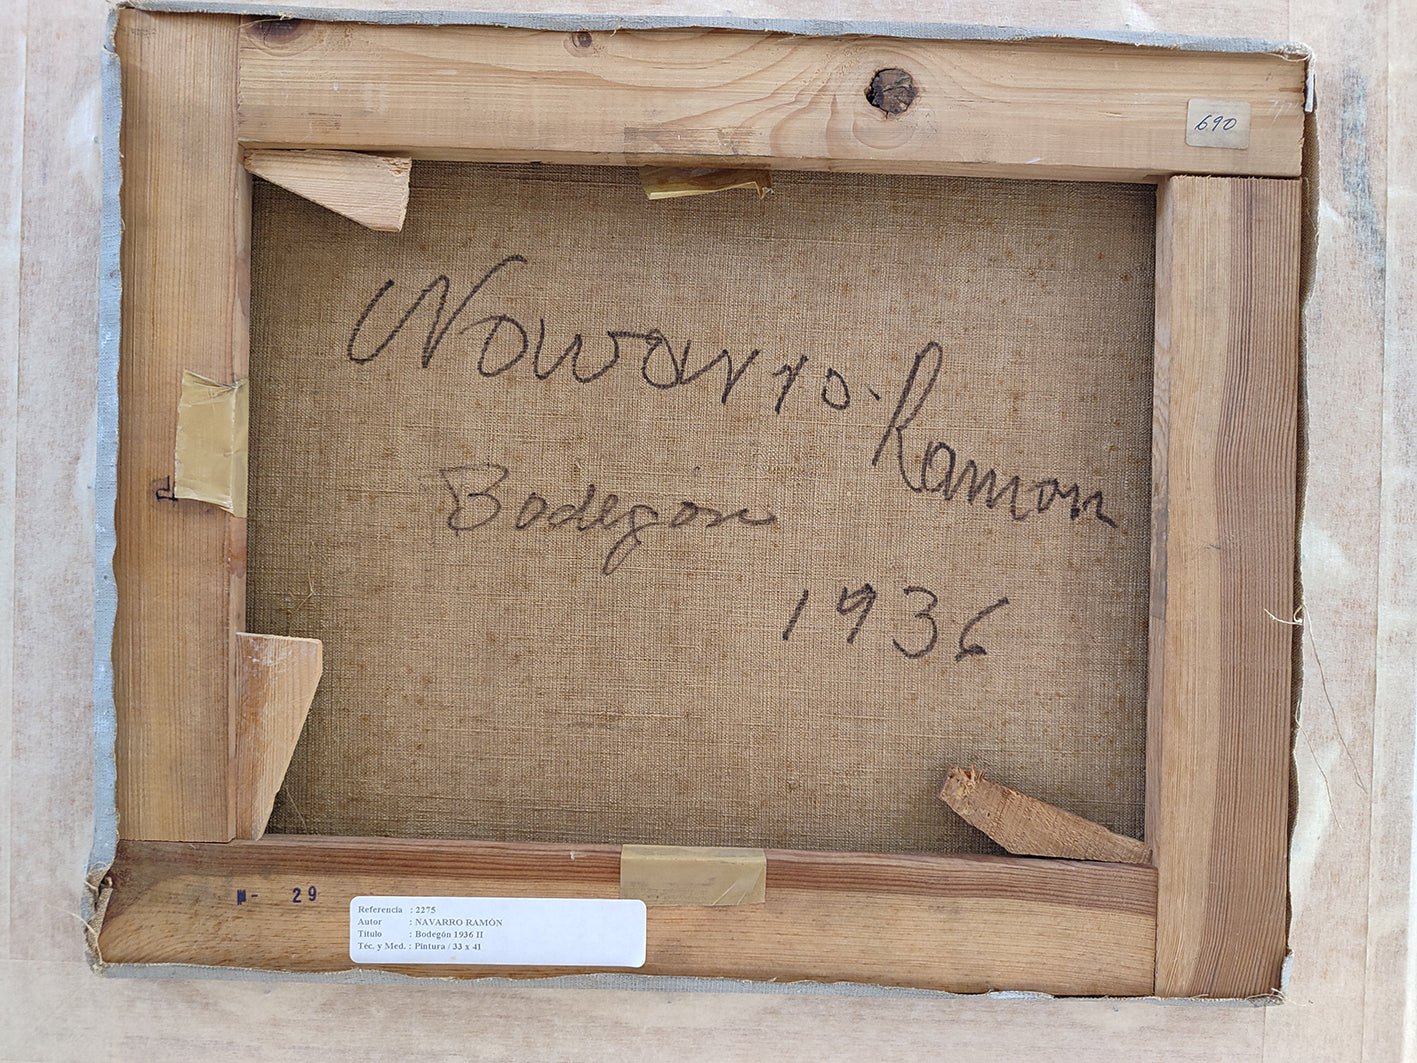 690
Navarro-Ramon
Bodegón
1936
29
Referencia : 2275
Autor : NAVARRO RAMÓN
Título : Bodegón 1936 II
Téc. y Med. : Pintura / 33 x 41